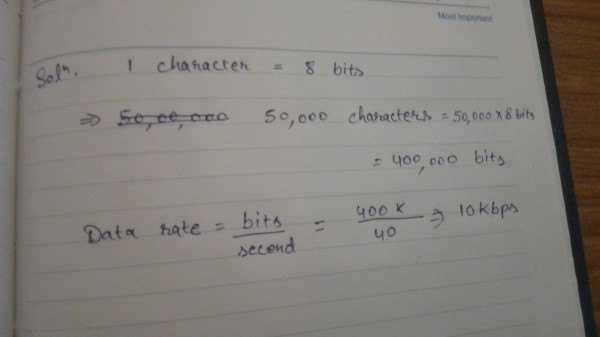 Most Important
Solⁿ. 1 character = 8 bits
⇒ 50,00,000 50,000 characters = 50,000 × 8 bits
= 400,000 bits
Data rate = bits/second = 400 K/40 ⇒ 10 kbps